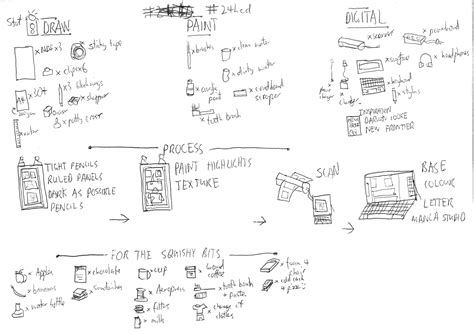 Start
DRAW
PAINT
#24hcd
DIGITAL
x sticky tape
x clips x6
x sharpener
x ruler
x putty eraser
x brushes
x clean water
x dirty water
x acrylic paint
x cardboard scraper
x tooth brush
x scanner
x powerboard
x headphones
x keyboard
x stylus
x phone charger
INSPIRATION
DARWYN COOKE
NEW FRONTIER
PROCESS
TIGHT PENCILS
RULED PANELS
DARK AS POSSIBLE
PENCILS
PAINT HIGHLIGHTS
TEXTURE
SCAN
BASE
COLOUR
LETTER
MANGA STUDIO
FOR THE SQUISHY BITS
x Apples
x bananas
x water bottle
x chocolate
x Sandwiches
x cup
x Aeropress
x filters
x milk
x ground coffee
x tooth brush
x paste
x change of clothes